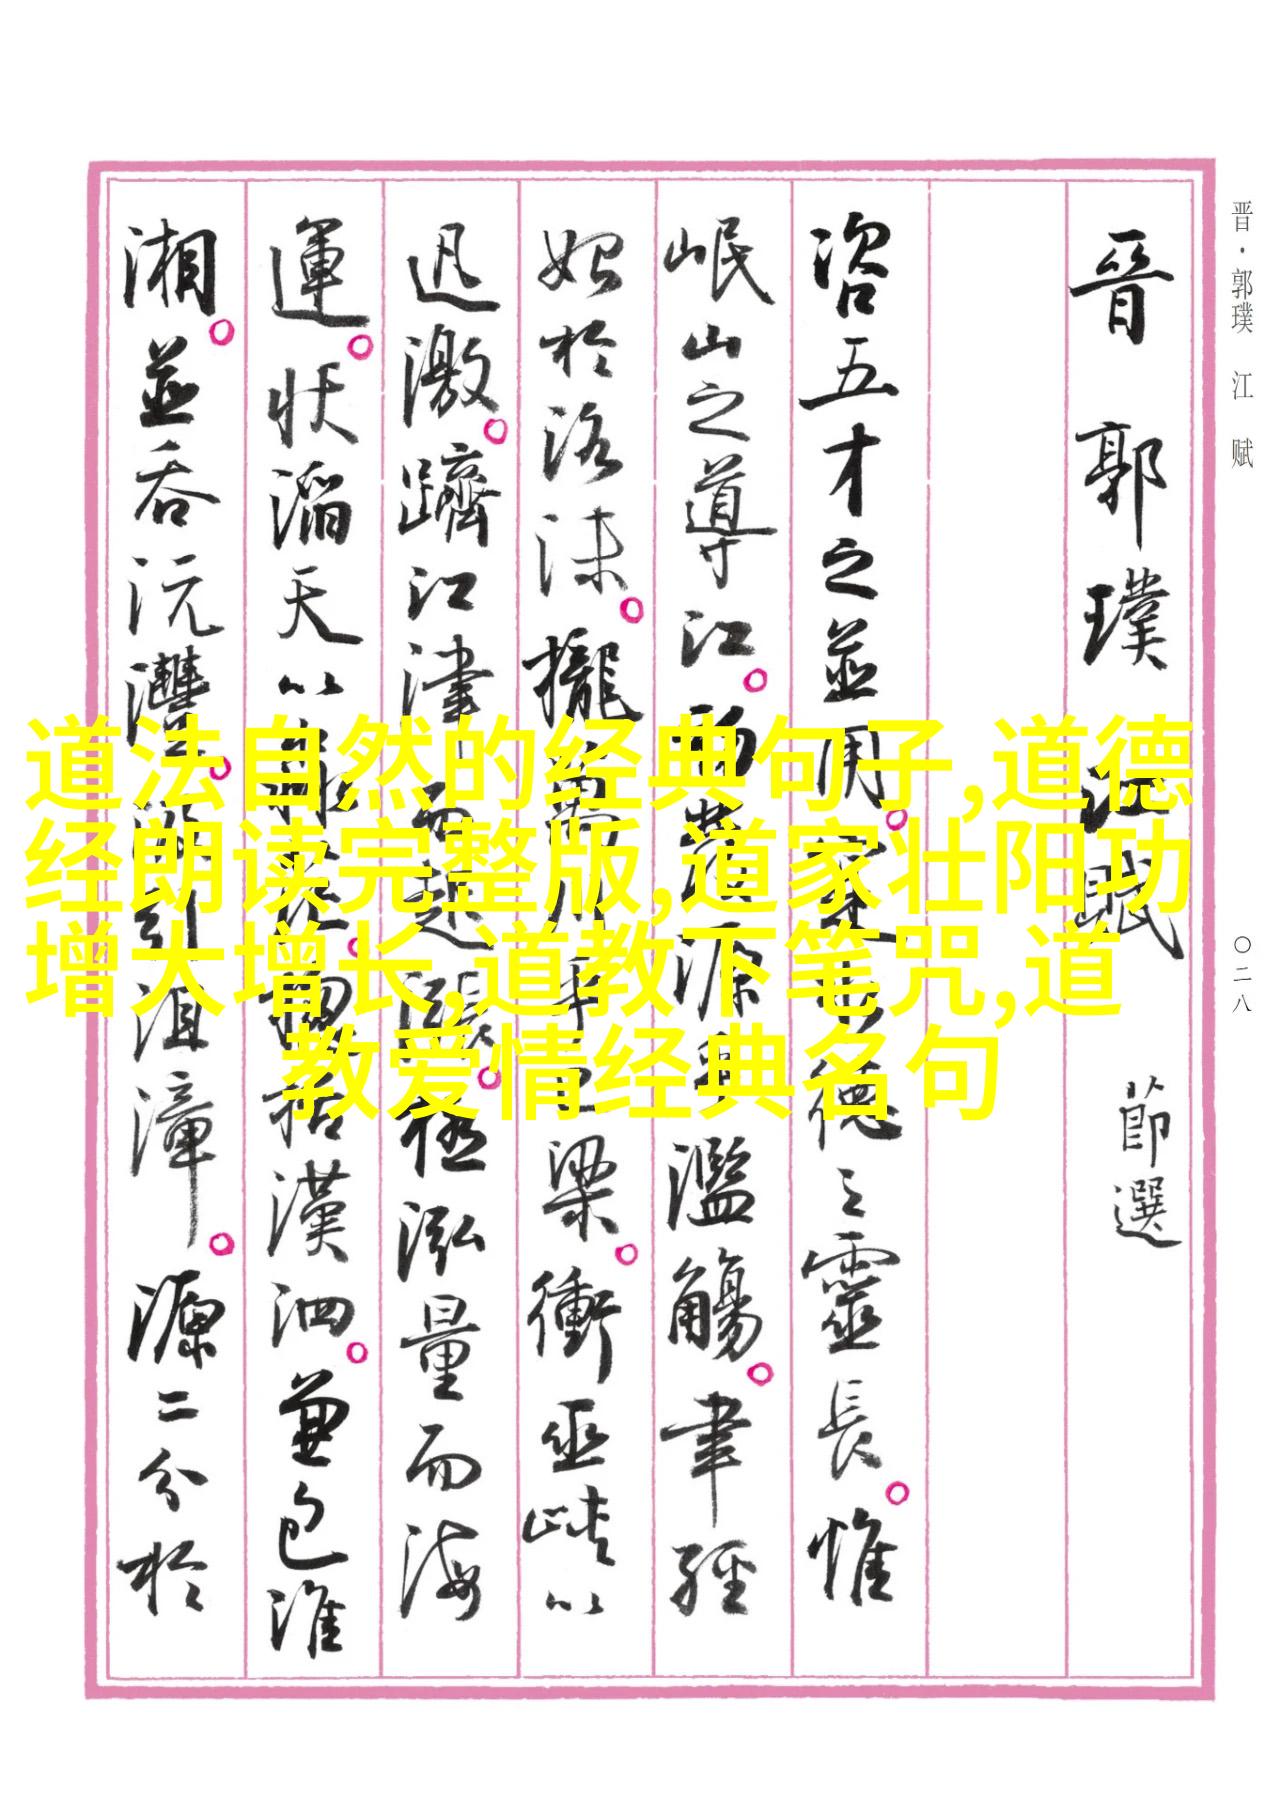 晋·郭璞 江 赋
〇二八
晉 郭璞 江賦 節選
咨五才之並用。寔水德之靈長。惟
岷山之導江。初發源乎濫觴。聿經
始於洛沫。攏萬川乎巴梁。衝巫峽以
迅激。躋江津而起漲。極泓量而海
運。狀滔天以淼茫。揔括漢泗。兼包淮
湘。並吞沅澧。汲引沮漳。源二分於
道法自然的经典句子,道德
经朗读完整版,道家壮阳功
增大增长,道教下笔咒,道
教爱情经典名句